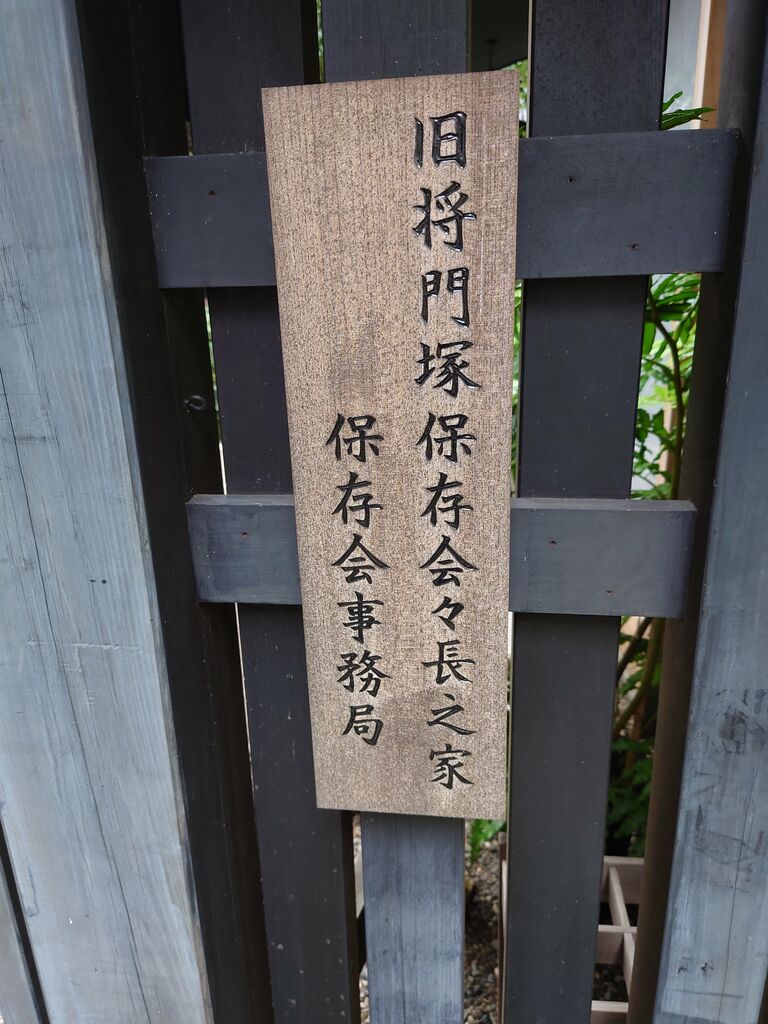 旧将門塚保存会々長之家
保存会事務局